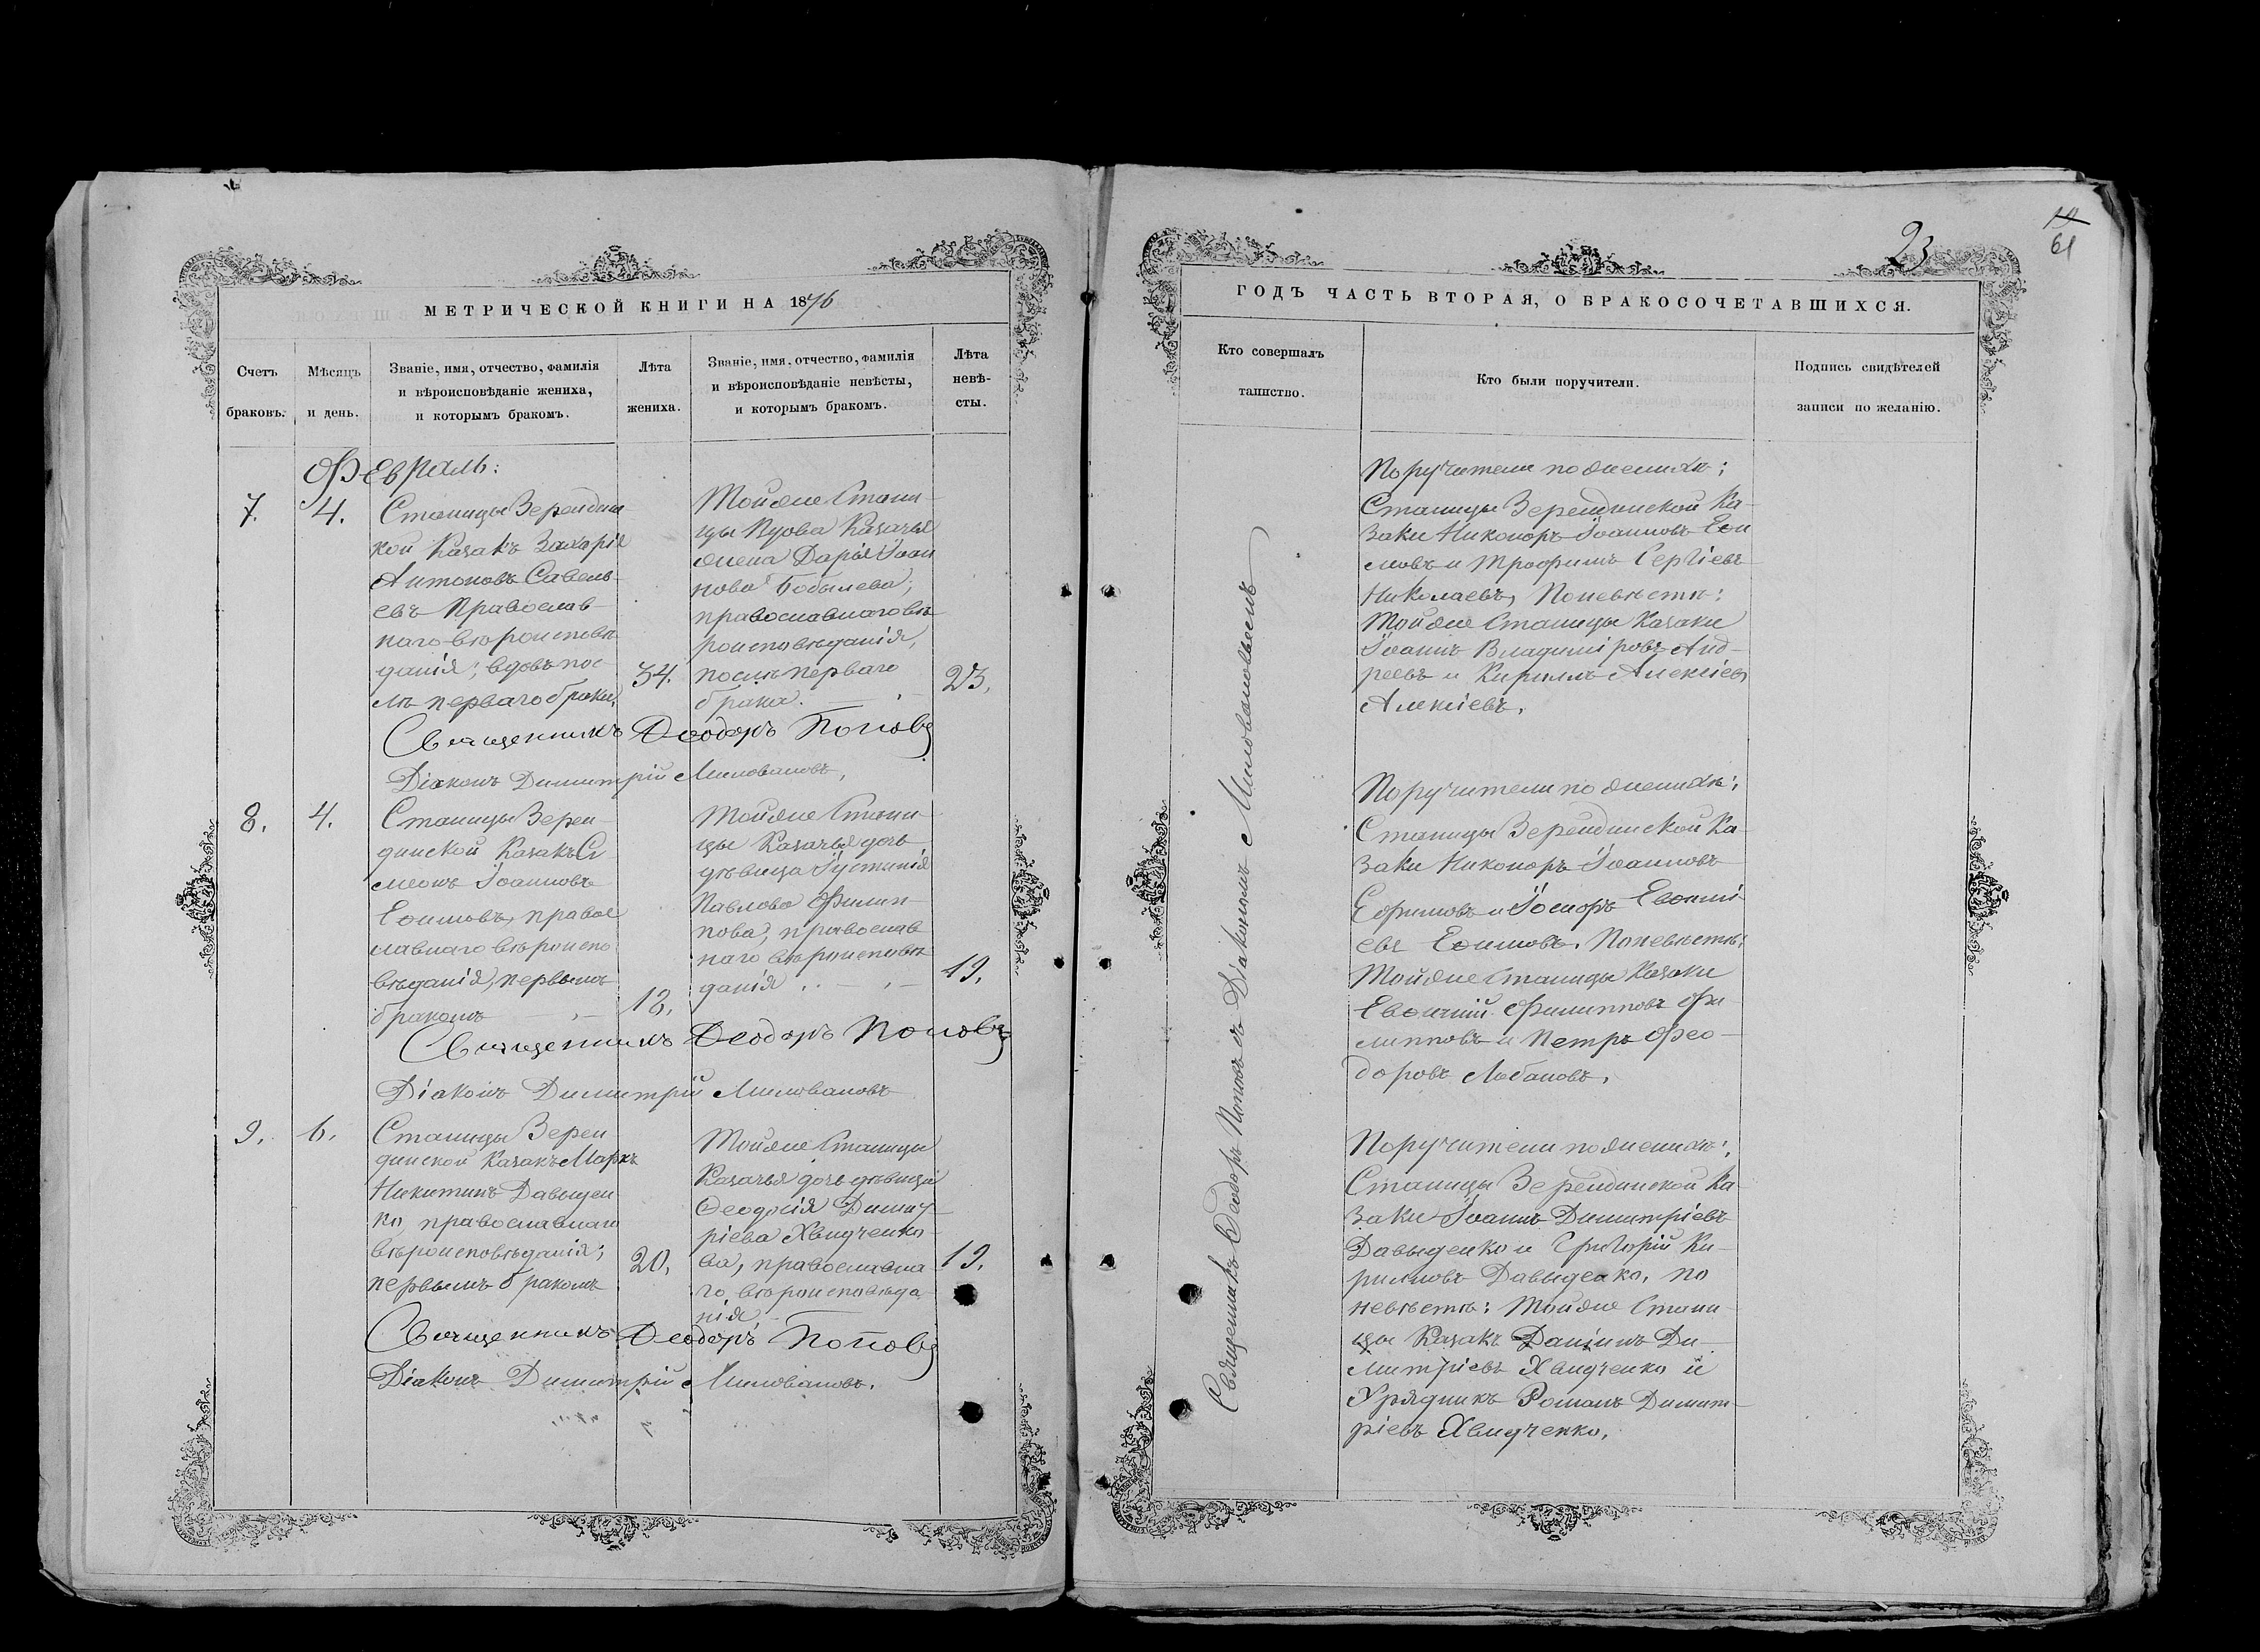 МЕТРИЧЕСКОЙ КНИГИ НА 1876
Счетъ браковъ.
Мѣсяцъ и день.
Званіе, имя, отчество, фамилія
и вѣроисповѣданіе жениха,
и которымъ бракомъ.
Лѣта жениха.
Званіе, имя, отчество, фамилія
и вѣроисповѣданіе невѣсты,
и которымъ бракомъ.
Лѣта
невѣ-
сты.
Февраль:
7.
4.
Станицы Зерендин
кой Казакъ Захарія
Антоновъ Савель-
евъ православ-
наго вѣроисповѣ
данія, вдовъ пос-
лѣ перваго брака,
34.
Тойже Стани-
цы Вдова Казачья
жена Дарія Іоан
нова Бобылева,
православнаго вѣ
роисповѣданія,
послѣ перваго
брака.
23.
Священникъ Ѳеодоръ Поповъ
Діаконъ Димитрій Миловановъ,
8.
4.
Станицы Зерен-
динской Казакъ Си
меонъ Іоанновъ
Еѳимовъ, правос
лавнаго вѣроиспо
вѣданія, первымъ
бракомъ
18.
Тойже Стани-
цы Казачья дочь
дѣвица Іустинія
Павлова Филип-
пова, православ
наго вѣроисповѣ
данія
19.
Священникъ Ѳеодоръ Поповъ
Діаконъ Димитрій Миловановъ
9.
6.
Станицы Зерен
динской Казакъ Маркъ
Никитинъ Давыден
ко, православнаго
вѣроисповѣданія;
первымъ бракомъ
20.
Тойже Станицы
Казачья дочь дѣвица
Ѳеодосія Димит-
ріева Хвидченко-
ва, православна
го вѣроисповѣда
нія
19.
Священникъ Ѳеодоръ Поповъ
Діаконъ Димитрій Миловановъ.
23
61
ГОДЪ ЧАСТЬ ВТОРАЯ, О БРАКОСОЧЕТАВШИХСЯ.
Кто совершалъ
таинство.
Кто были поручители.
Подпись свидѣтелей
записи по желанію.
Священникъ Ѳеодоръ Поповъ съ Діакономъ Миловановымъ
Поручители по женихѣ;
Станицы Зерендинской Ка-
заки Никоноръ Іоанновъ Еѳи
мовъ и Трофимъ Сергіевъ
Николаевъ, По невѣстѣ:
Тойже Станицы Казаки
Іоаннъ Владиміровъ Анд-
реевъ и Кириллъ Алексіевъ
Алексіевъ.
Поручители по женихѣ;
Станицы Зерендинской Ка-
заки Никоноръ Іоанновъ
Ефимовъ и Іосифъ Евѳимі
евъ Еѳимовъ. По невѣстѣ:
Тойже Станицы Казаки
Евѳимій Филипповъ Фи-
липповъ и Петръ Фео-
доровъ Лобановъ.
Поручители по женихѣ;
Станицы Зерендинской Ка-
заки Іоаннъ Димитріевъ
Давыденко и Григорій Ки-
рилловъ Давыденко, По
невѣстѣ: Тойже Стани-
цы Казакъ Даніилъ Ди-
митріевъ Хвидченко и
Урядникъ Романъ Димит-
ріевъ Хвидченко.